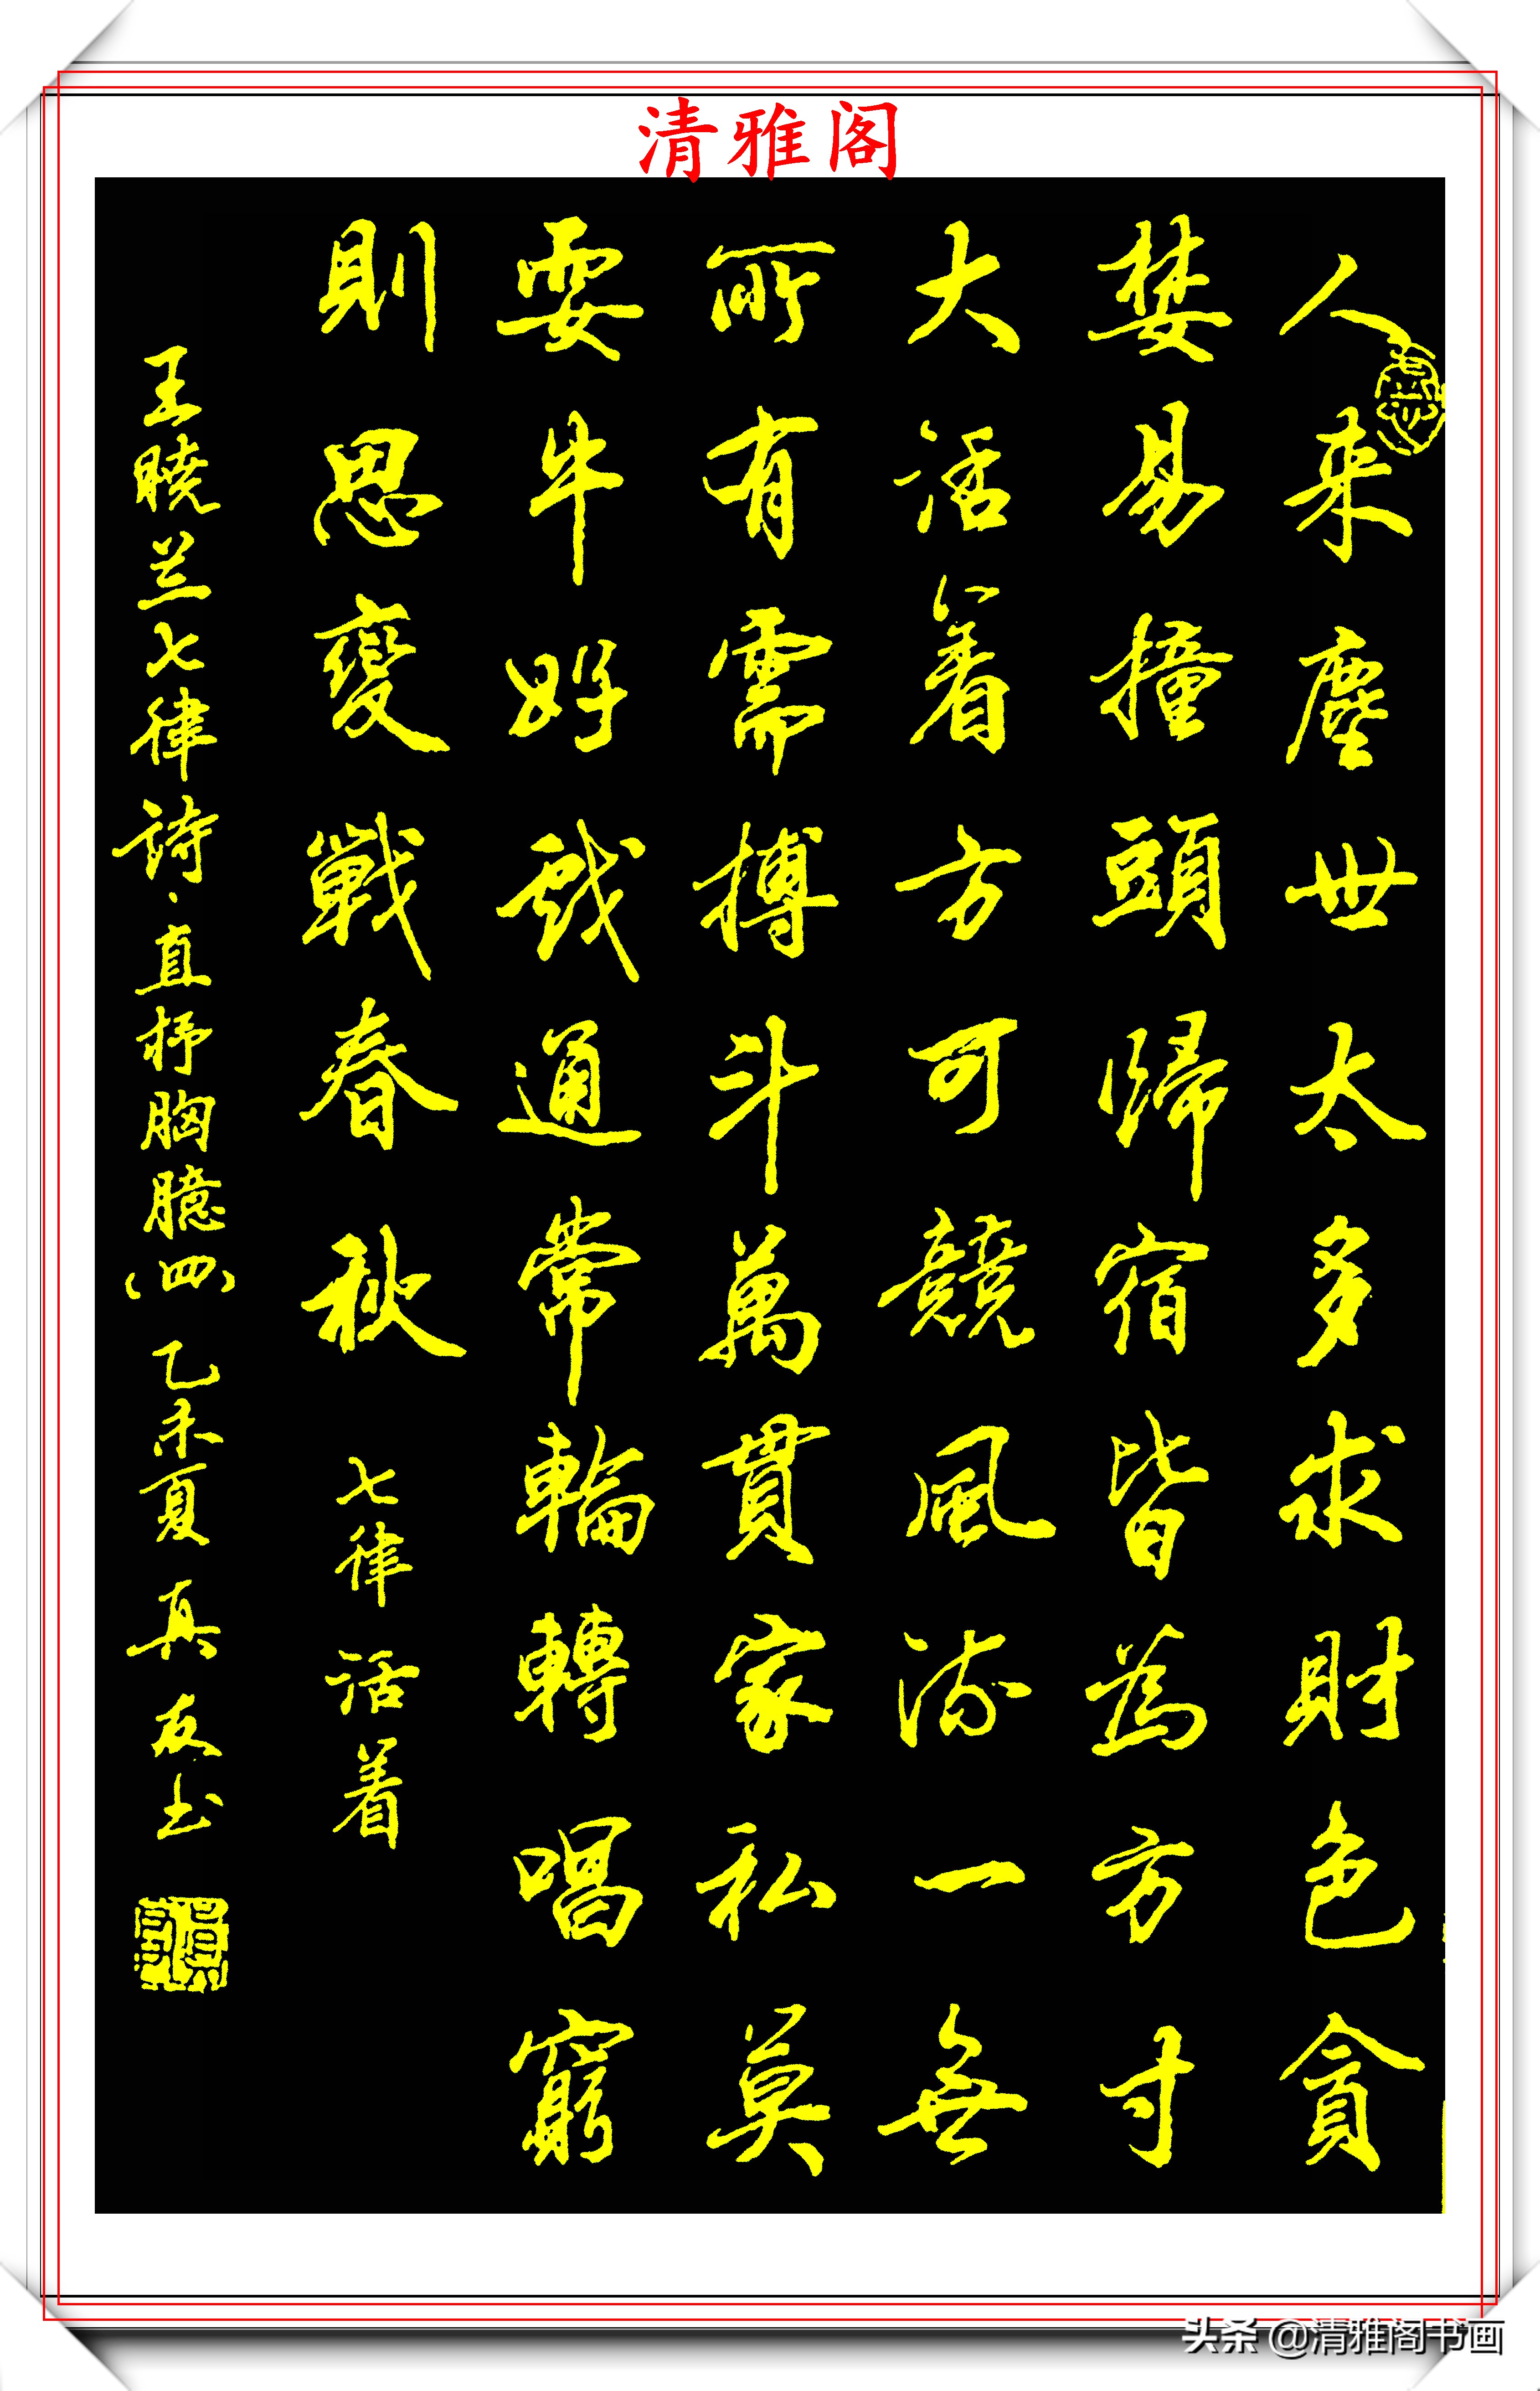 清雅阁
人来塵世太多求財色貪
婪易撞頭歸宿皆為方寸
大活着方可競風流一無
所有需搏斗萬貫家私莫
耍牛好戏通常輪轉唱窮
則思變戰春秋 七律 活着
王曉兰七律詩、直抒胸臆(四) 乙未夏 真友书
头条 @清雅阁书画